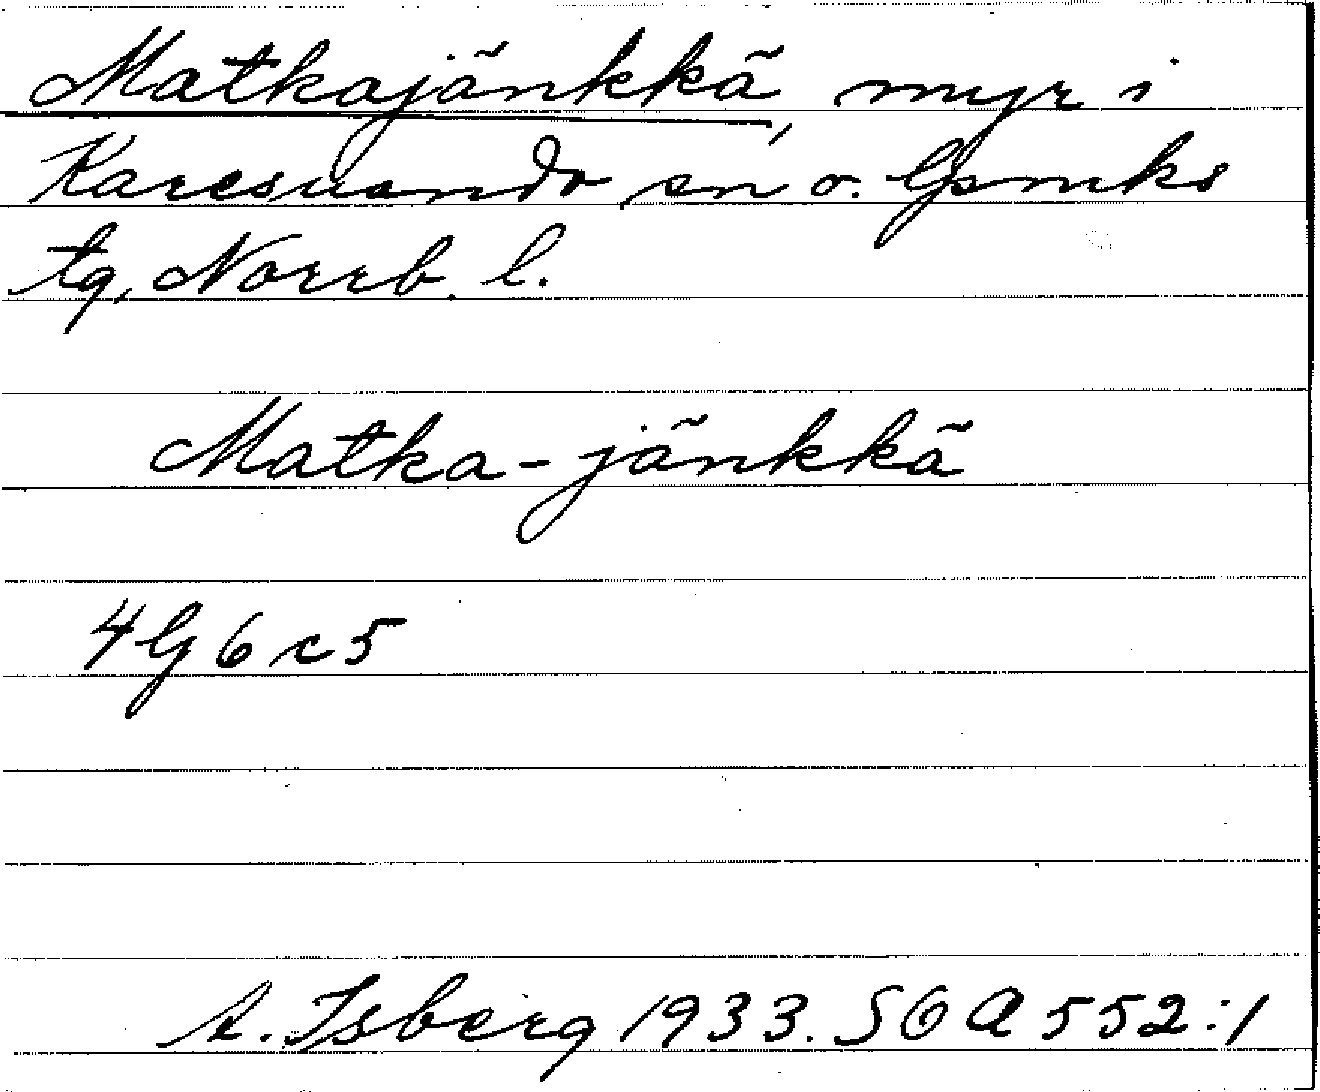 Matkajänkkä, myr i
Karesuando sn o. Gsmks
tg, Norrb. l.
Matka-jänkkä
4G6c5
A. Isberg 1933. SOA 552:1